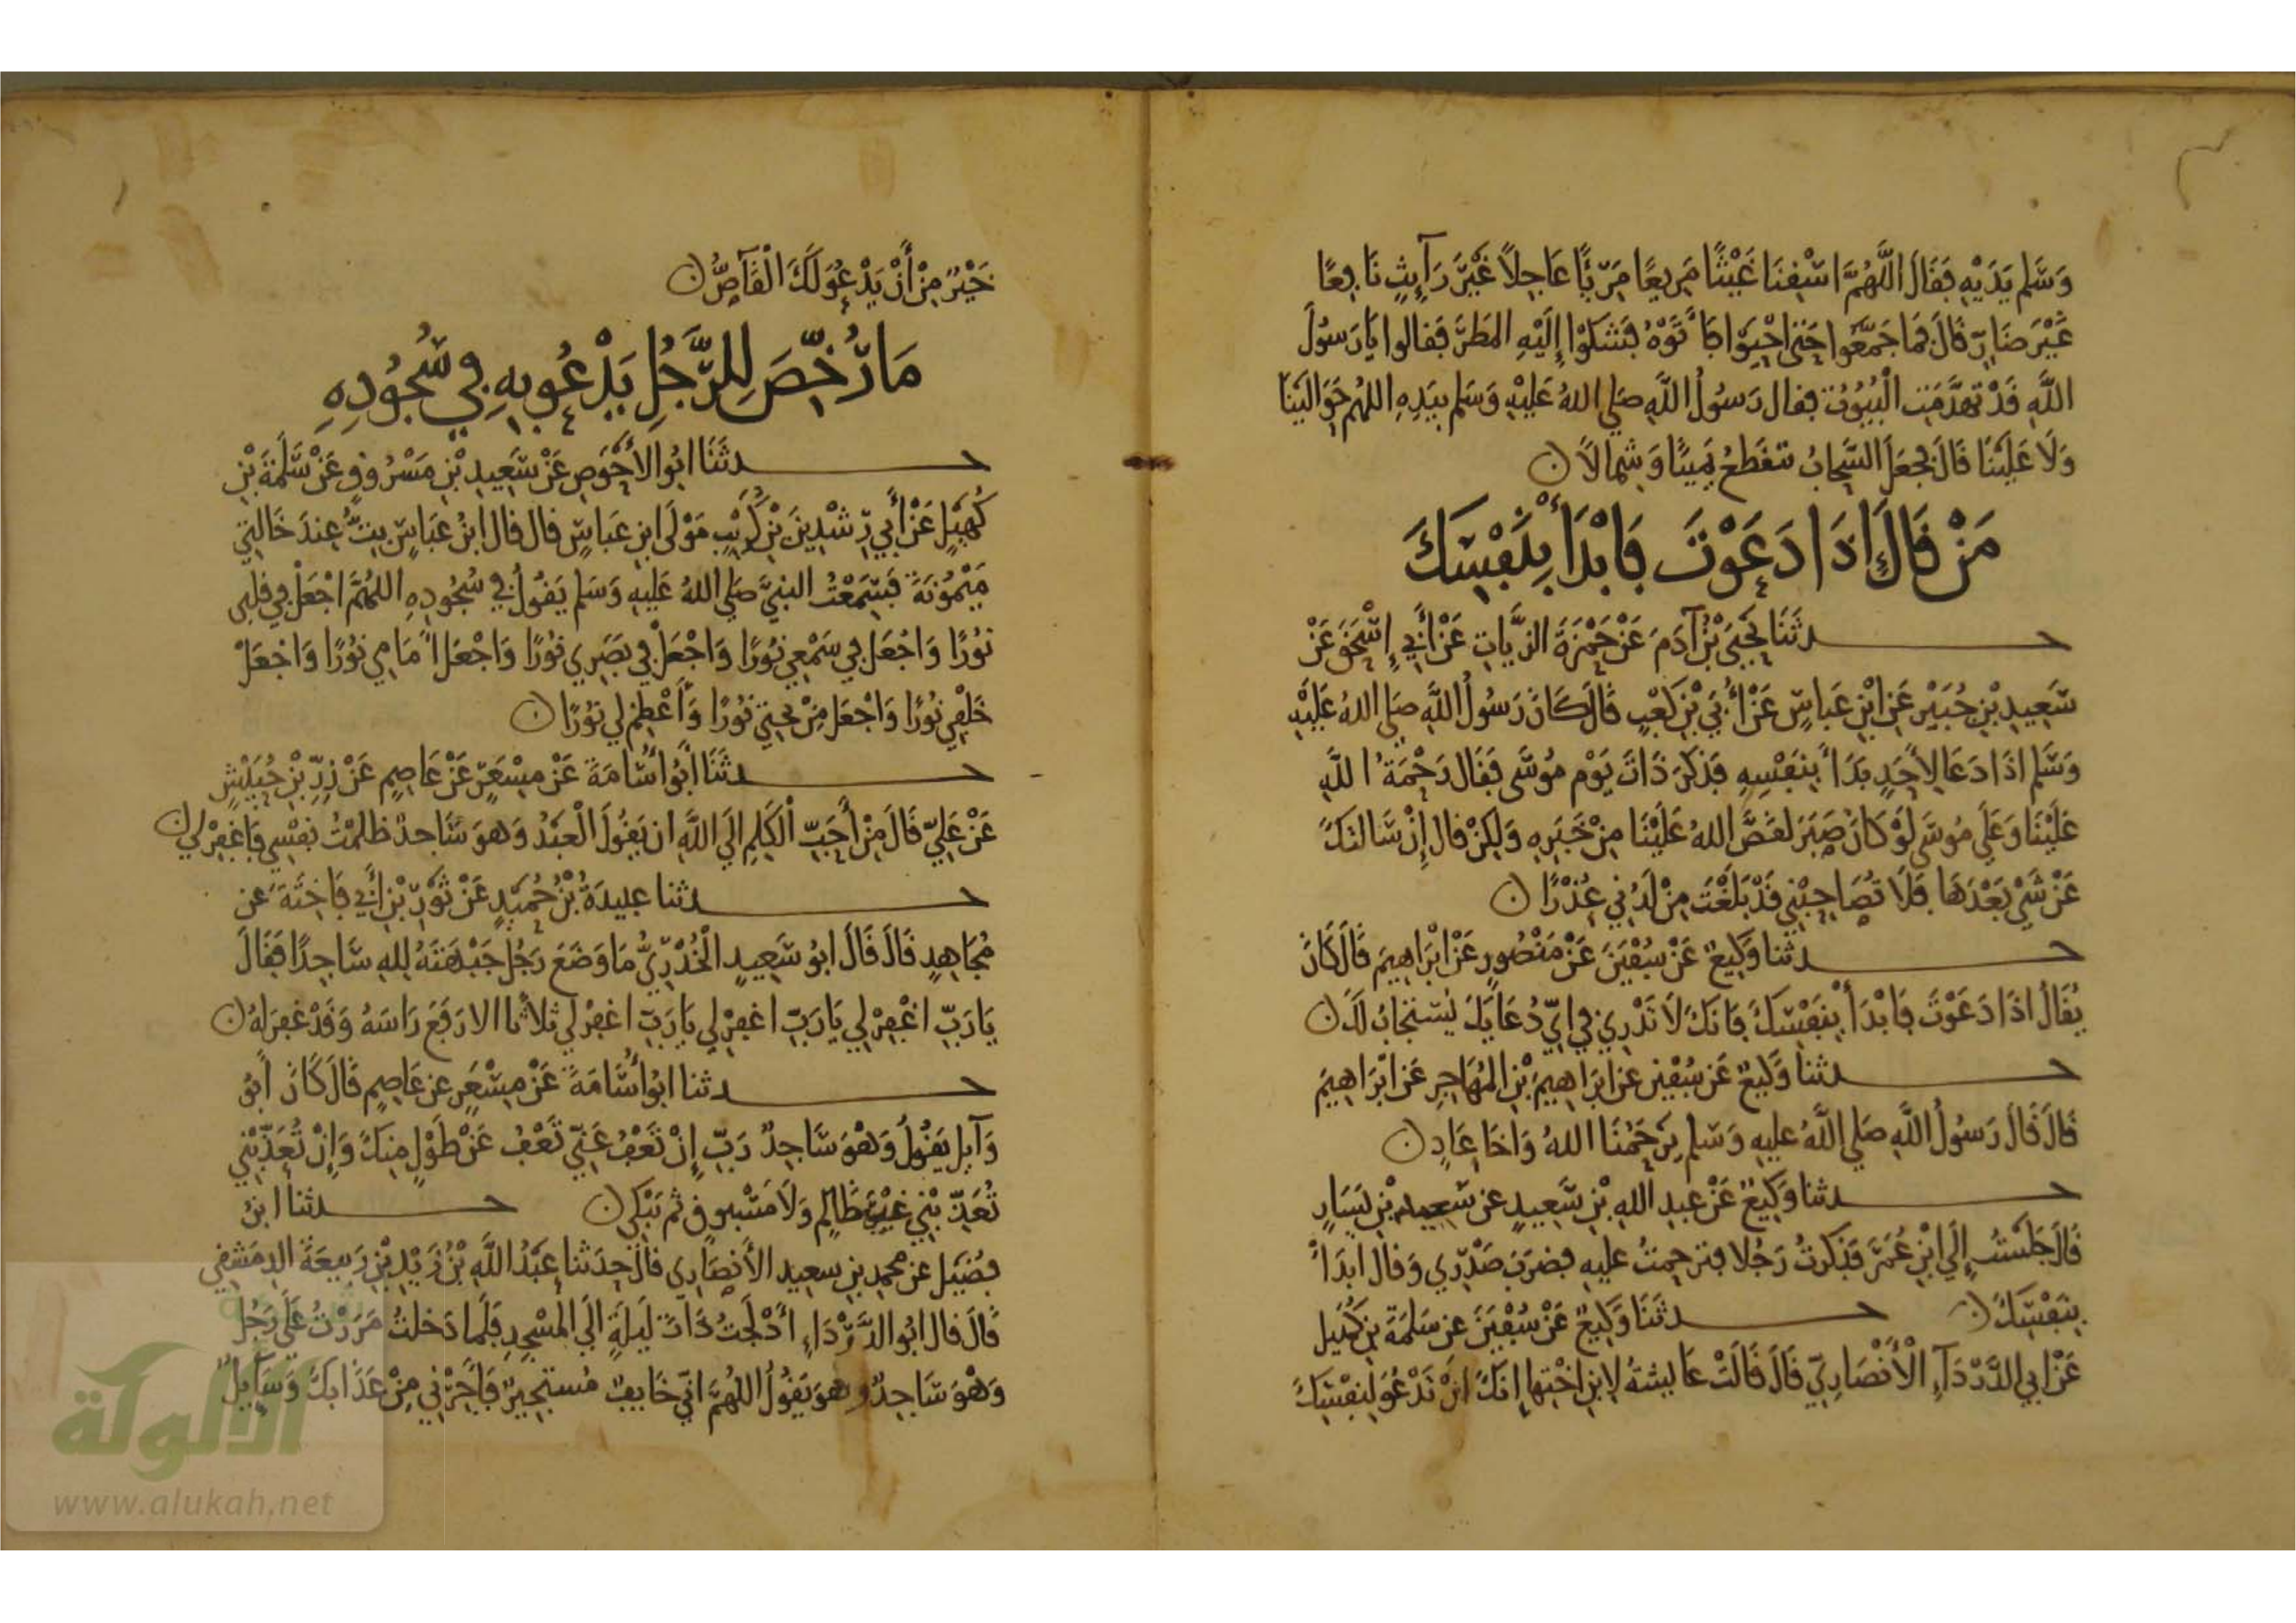 وَسَلَّم يَدَيْهِ فَقَالَ اللَّهُمَّ اسْقِنَا غَيْثًا مَرِيعًا مَرِيًّا عَاجِلًا غَيْرَ رَايِثٍ نَافِعًا
غَيْرَ ضَارٍّ قَالَ فَمَا جَمَّعُوا حَتَّى احْيُوا فَأَتَوْهُ فَشَكَوْا إِلَيْهِ المَطَرَ فَقَالوا يَا رَسُولَ
اللَّهِ قَدْ تَهَدَّمَتِ الْبُيُوتُ فقال رَسُولُ اللَّهِ صَلى اللهُ عَلَيْهِ وَسَلم بِيَدِهِ اللهُم حَوَالَيْنَا
وَلَا عَلَيْنَا قَالَ فَجَعَلَ السَّحَابُ تتقَطعُ يَمِينًا وَشِمالًا
مَنْ قَالَ إِذَا دَعَوْتَ فَابْدَأْ بِنَفْسِكَ
حدثَنَا يَحْيَى بْنُ آدَمَ عَنْ حَمْزَةَ الزيَّاتِ عَنْ أَبِي إِسْحَقَ عَنْ
سَعِيدِ بْنِ جُبَيْرٍ عَنِ ابْنِ عَباسٍ عَنْ أُبَيِّ بْنِ كَعْبٍ قَالَ كَانَ رَسُولُ اللَّهِ صَلى اللهُ عَلَيْهِ
وَسَلَّم اذَا دَعَا لِأَحَدٍ بَدَأَ بِنَفْسِهِ فَذَكَرَ ذَاتَ يَوْمٍ مُوسَى فَقَال رَحْمَةُ اللَّهِ
عَلَيْنَا وَعَلَى مُوسَى لَوْ كَانَ صَبَرَ لَقَصَّ اللهُ عَلَيْنَا مِنْ خَبَرِهِ وَلَكِنْ قال إِنْ سَالتكَ
عَنْ شَيْءٍ بَعْدَهَا فَلَا تُصَاحِبْنِي قَدْ بَلَغْتَ مِنْ لَدُنِّي عُذْرًا
حدثنا وَكِيعٌ عَنْ سُفْيَنَ عَنْ مَنْصُورٍ عَنْ ابْرَاهِيمَ قَالَ كَانَ
يُقَالُ اذَا دَعَوْتَ فَابْدَأْ بِنَفْسِكَ فَانكَ لَا تَدْرِي فِي ايِّ دُعَايكَ يُسْتجَابُ لَكَ
حدثنا وَكِيعٌ عَنْ سُفْيَن عن ابْرَاهِيمَ بْنِ المُهَاجِرِ عَن ابْرَاهِيمَ
قَالَ قَالَ رَسُولُ اللَّهِ صَلى اللَّهُ عليهِ وَسَلم يَرحَمُنَا اللهُ وَاخَا عَادٍ
حدثنا وَكِيعٌ عَنْ عبدِ اللهِ بْنِ سَعِيدٍ عن سَعِيد بْنِ يَسَارٍ
قَالَ جَلَسْتُ إِلَى ابْنِ عُمَرَ فَذَكرتُ رَجُلا فترحمتُ عليهِ فضربَ صَدْرِي وَقال ابدَأْ
بِنَفْسِكَ حدثَنَا وَكِيعٌ عَنْ سُفْيَنَ عن سَلمَةَ بنِ كُهَيل
عَنْ ابي الدَّرْدَآءِ الْأَنْصَارِيِّ قَالَ قَالَتْ عَايشةُ لِابْنِ اخْتِها إِنكَ انْ تَدْعُوَ لِنفْسِكَ
خَيْرٌ مِنْ أَنْ يَدْعُوَ لَكَ الْقَاصُّ
مَا رُخِّصَ لِلرَّجُلِ يَدْعُو بِهِ فِي سُجُودِهِ
حدثَنَا ابُو الأَحْوَصِ عَنْ سَعِيدِ بْنِ مَسْرُوقٍ عَنْ سَلَمَةَ بْنِ
كُهَيْلٍ عَنْ أَبِي رِشْدِينَ بْنِ كُرَيْبٍ مَوْلَى ابنِ عَبَاسٍ قال قال ابْنُ عَبَاسٍ بِتُّ عِندَ خَالَتِي
مَيْمُونَةَ فَسَمِعْتُ النبيَّ صَلى اللهُ عَلَيهِ وَسَلم يَقُولُ فِي سُجُودِهِ اللهُمَّ اجْعَلْ فِي قلبِي
نُورًا وَاجْعَل فِي سَمْعِي نُورًا وَاجْعَلْ فِي بَصَرِي نُورًا وَاجْعَل أَمَامِي نُورًا وَاجْعَلْ
خَلْفِي نُورًا وَاجْعَل مِنْ تحتِي نُورًا وَأَعْظِمْ لِي نُورًا
حدثَنَا أَبُو أُسَامَةَ عَنْ مِسْعَرٍ عَنْ عَاصِمٍ عَنْ زِرِّ بْنِ حُبَيْشٍ
عَنْ عَلِيٍّ قَالَ مِنْ أَحَبِّ الْكَلِمِ الَى اللَّهِ ان يَقُولَ الْعَبْدُ وَهوَ سَاجدٌ ظلمْتُ نفْسِي فَاغْفِرْ لِي
حدثنا عبيدَةُ بْنُ حُمَيْدٍ عَنْ ثُوَيْرِ بْنِ أَبِي فَاخِتَةَ عَن
مُجَاهِدٍ قَالَ قَالَ ابُو سَعِيدٍ الْخُدْرِيُّ مَا وَضَعَ رَجُلٌ جَبْهَتَهُ لِلهِ سَاجِدًا فَقَالَ
يَا رَبِّ اغْفِرْ لِي يَا رَبِّ اغفِرْ لِي يَا رَبِّ اغفِرْ لِي ثلاثا الا رَفَعَ رَاسَهُ وَقَدْ غفِرَ لهُ
حدثنا ابُو أُسَامَةَ عَنْ مِسْعَرٍ عن عَاصِمٍ قَالَ كَانَ أَبُو
وَآيِلٍ يَقُولُ وَهْوَ سَاجِدٌ رَبِّ إِنْ تَعْفُ عَنِّي تَعْفُ عَنْ طَوْلٍ مِنكَ وَإِنْ تُعَذِّبْنِي
تُعَذِّبْنِي غَيْرَ ظَالِمٍ وَلَا مَسْبُوقٍ ثم يَبْكِي حدثنا ابْنُ
فُضَيل عن محمدِ بنِ سعيد الأَنصَارِي قالَ حَدثنا عَبْدُ اللَّهِ بْنُ يَزِيْدِ بْنِ رَبِيعَةَ الدِمَشْقِي
قَالَ قال ابُو الدَّرْدَاءِ أَدْلَجْتُ ذَاتَ لَيلَةٍ الَى المَسْجِدِ فَلَما دَخلتُ مَرَرْتُ عَلَى رَجُلٍ
وَهْوَ سَاجِدٌ وهوَ يَقُولُ اللهُمَّ انِّي خَايفٌ مُستجِيرٌ فَأَجِرْنِي مِنْ عَذَابكَ وَسَآيِلٌ
الألوكة
www.alukah.net